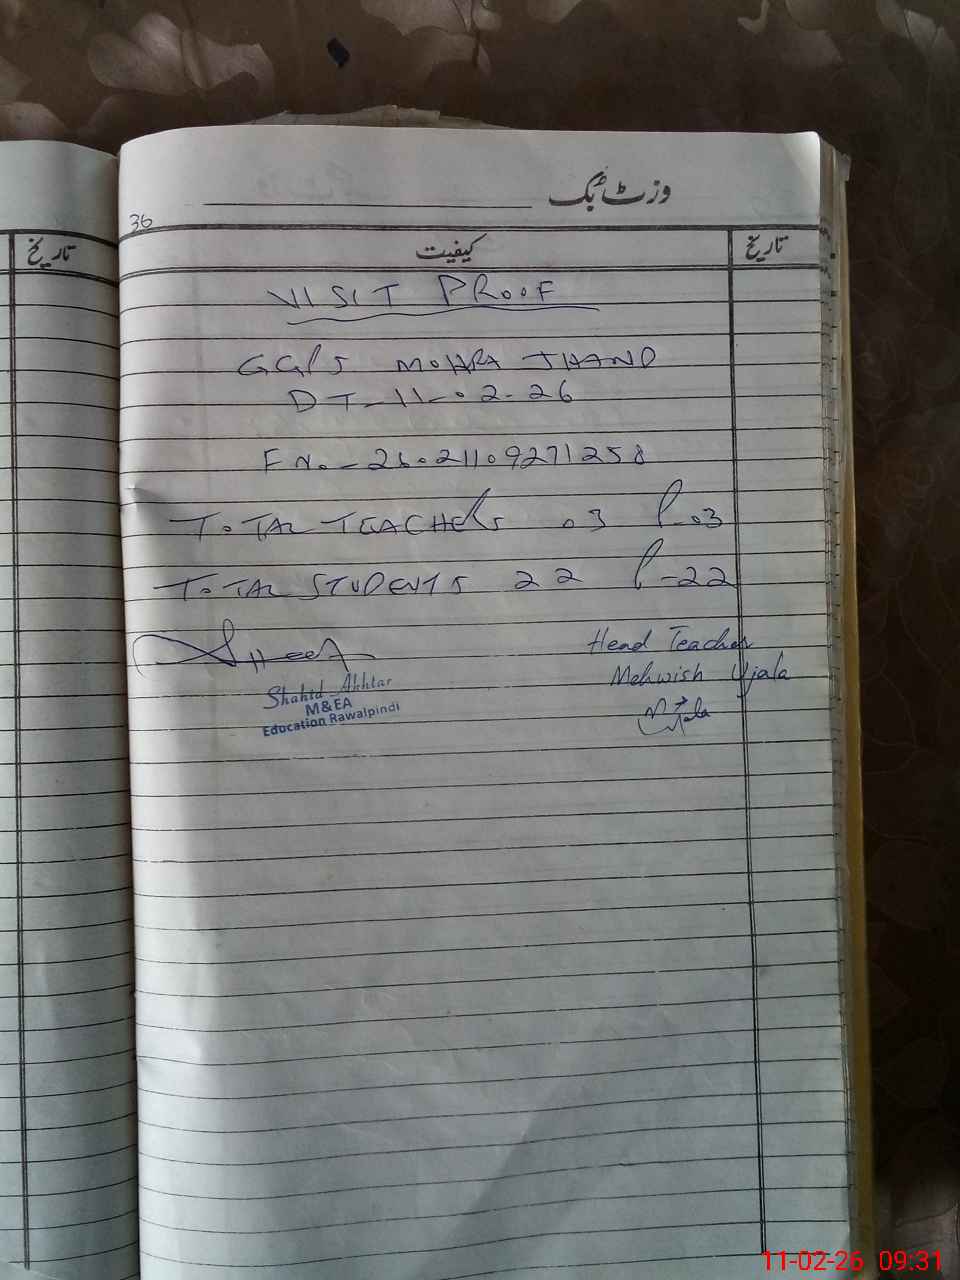 وزٹ بک
36
تاریخ کیفیت تاریخ
VISIT PROOF
GGPS MOHRA JHAND
DT-11-02-26
F No. - 26021109271258
TOTAL TEACHERS 03 P-03
TOTAL STUDENTS 22 P-22
Head Teacher
Mehwish Ujala
Shahid Akhtar
M&EA
Education Rawalpindi
11-02-26 09:31